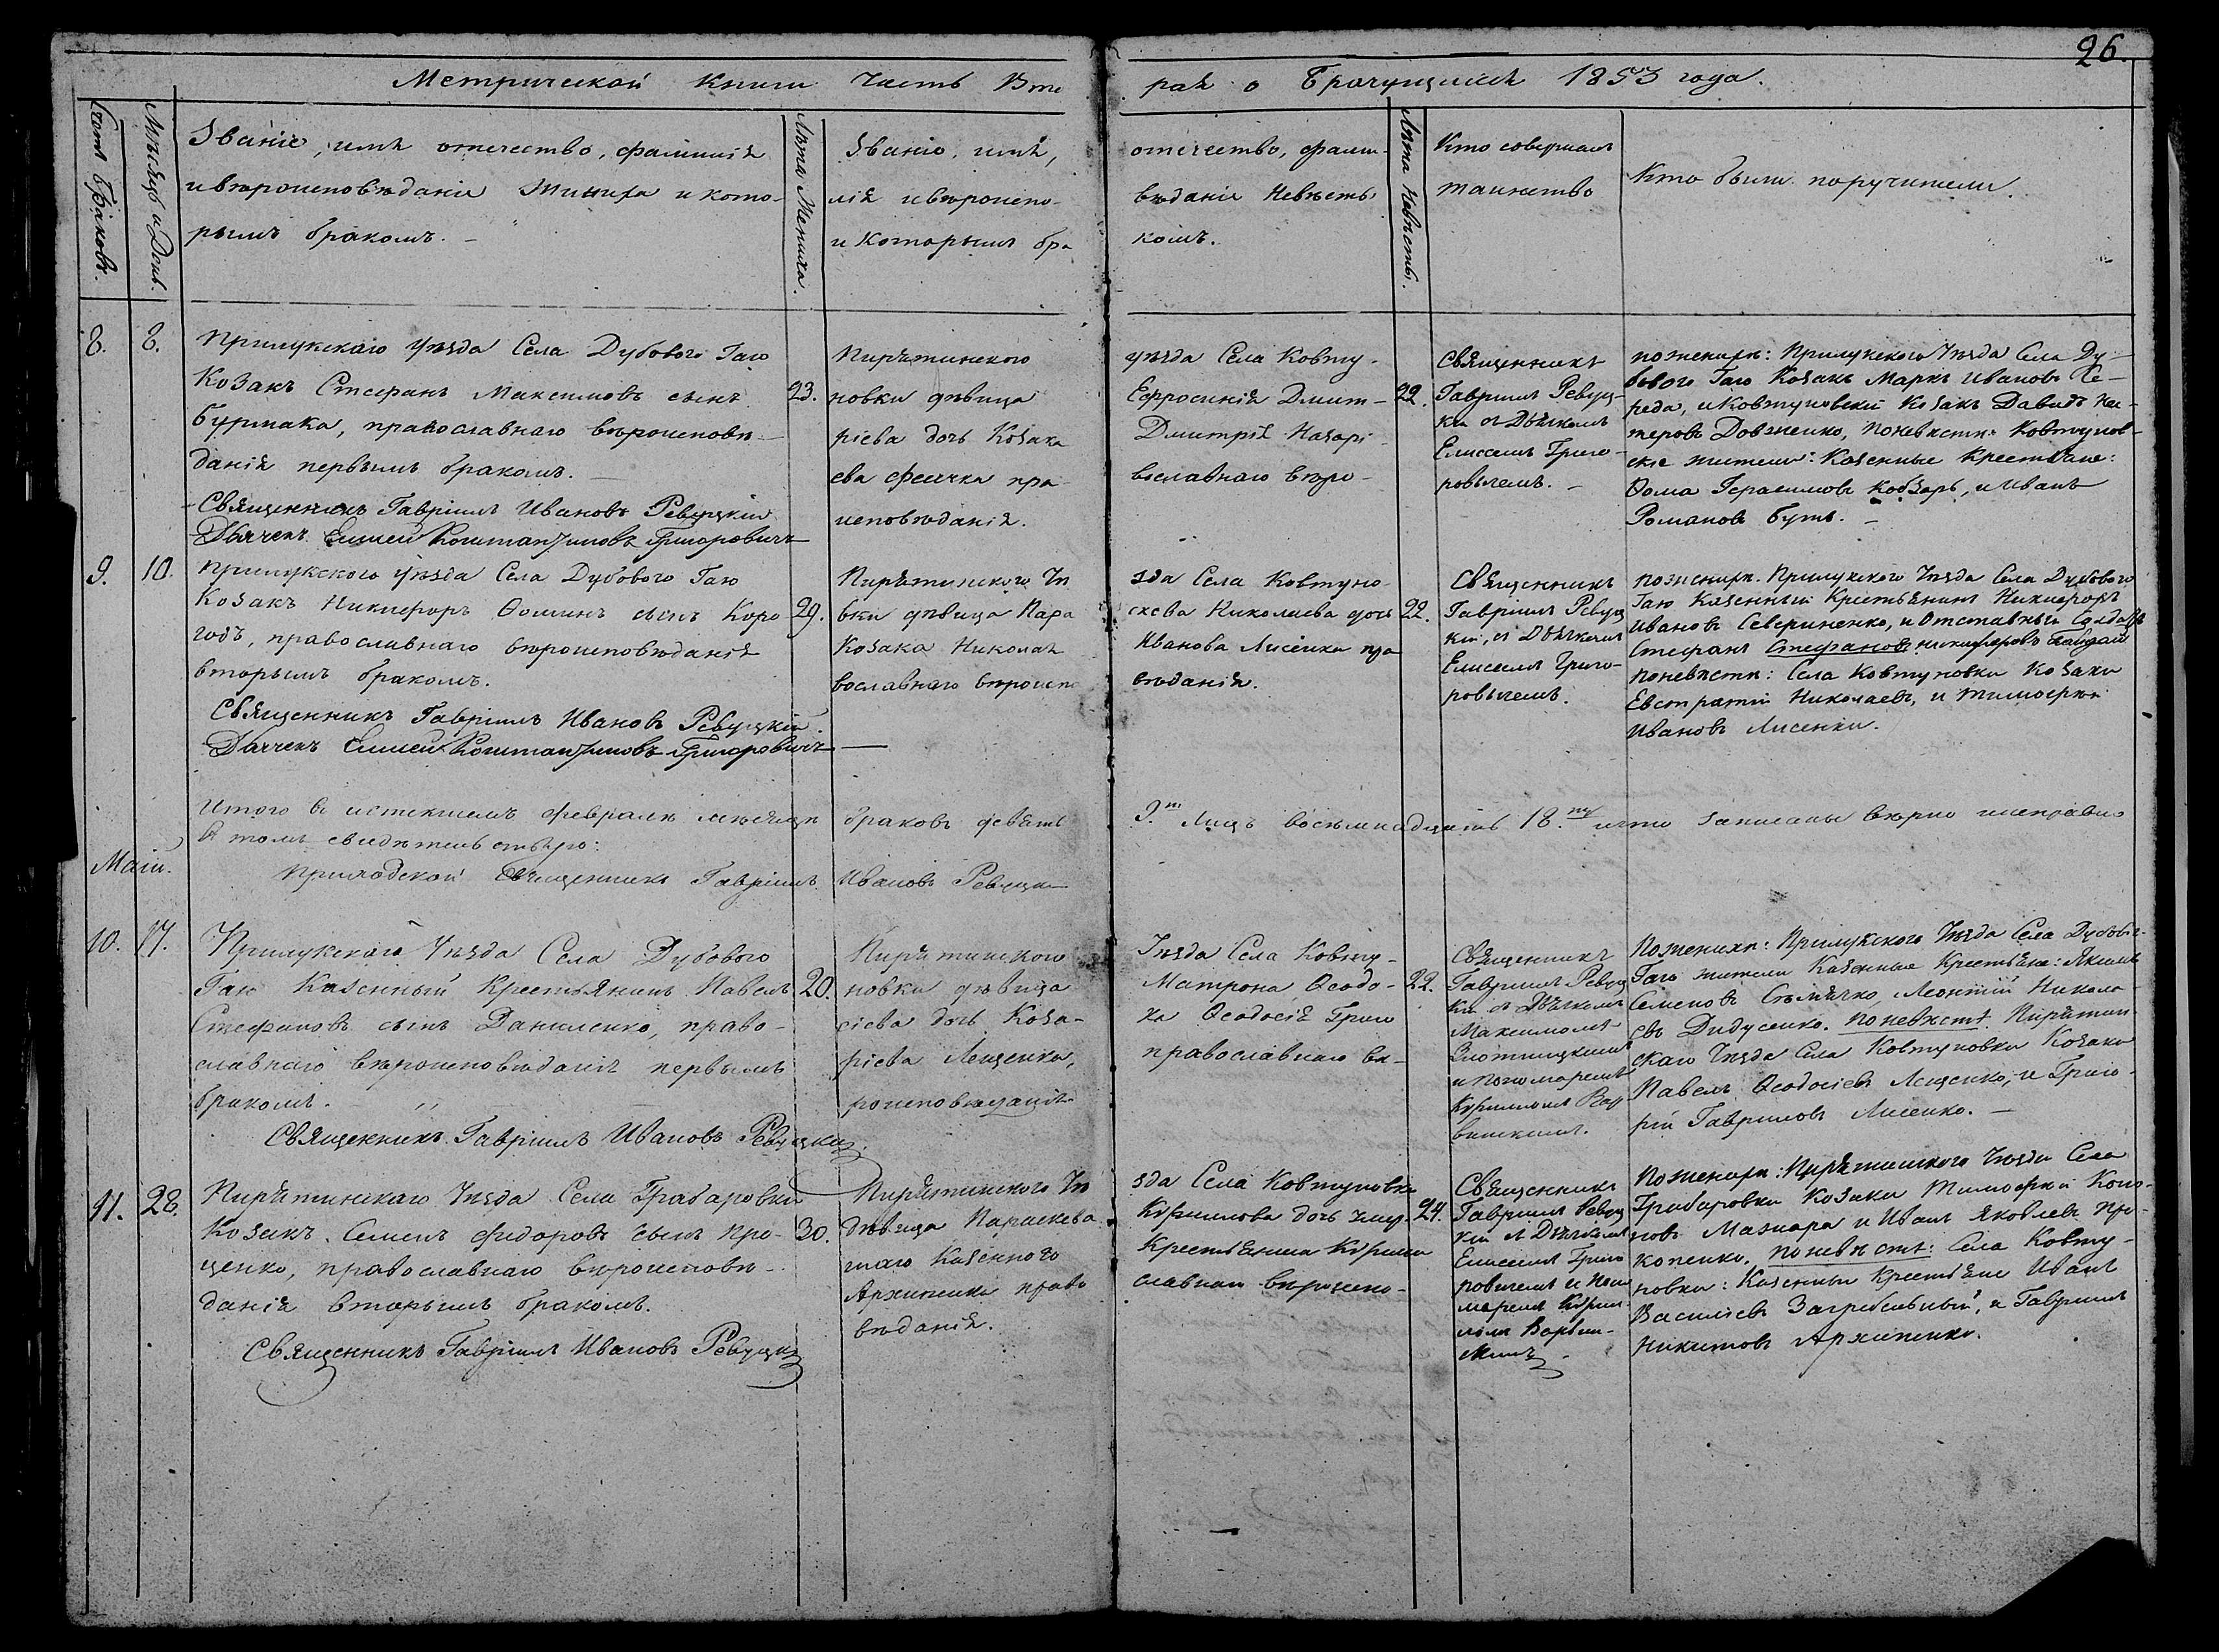 26.
Метрической Книги Часть Вто
рая о Брачущихся 1853 года.
Счетъ браковъ.
Мѣсяцъ и День.
Званіе, имя отечество, фамилія
и вѣроисповѣданіе Жениха и кото-
рымъ бракомъ.
Лѣта Жениха.
Званіе, имя,
лія и вѣроиспо-
и Которымъ бра
отечество, фами-
вѣданіе Невѣсты
комъ.
Лѣта Невѣсты.
Кто совершалъ
таинство
Кто были поручители.
8.
8.
Прилукскаго Уѣзда Села Дубового Гаю
Козакъ Стефанъ Максимовъ сынъ
Бурмака, православнаго вѣроисповѣ-
данія первымъ бракомъ.
Священникъ Гавріилъ Ивановъ Ревуцкій
Дьячекъ Елисей Константиновъ Григоровичъ
23.
Пирятинского
новки дѣвица
ріева дочь Козака
ева Фесечка пра-
исповѣданія.
уѣзда Села Ковту-
Ефросинія Дмит-
Дмитрія Назарі-
вославнаго вѣро-
22.
Священникъ
Гавріилъ Ревуц-
кій съ Дьячкомъ
Елисеемъ Григо-
ровичемъ.
по женихѣ: Прилукского Уѣзда Села Ду-
бового Гаю Козакъ Маркъ Ивановъ
и Ковтуновскій Козакъ Давидъ Не-
теровъ Довженко, по невѣстѣ: Ковтунов-
скіе жители: Казенные Крестьяне:
Ѳома Герасимовъ Кобзарь, и Иванъ
Романовъ Бутъ.
9.
10.
Прилукского Уѣзда Села Дубового Гаю
Козакъ Никифоръ Ѳоминъ сынъ Коро-
годъ, православнаго вѣроисповѣданія
вторымъ бракомъ.
Священникъ Гавріилъ Ивановъ Ревуцкій.
Дьячекъ Елисей Константиновъ Григоровичъ
29.
Пирятинского Уѣ
вки дѣвица Пара
Козака Николая
вославнаго вѣроиспо
зда Села Ковтуно-
скева Николаева дочь
Иванова Лисенка пра
вѣданія.
22.
Священникъ
Гавріилъ Ревуц
кій, съ Дьячкомъ
Елисеемъ Григо-
ровичемъ.
по женихѣ. Прилукского Уѣзда Села Дубового
Гаю Казенный Крестьянинъ Никифоръ
Ивановъ Севериненко, и Отставный Солдатъ
Стефанъ Стефановъ Никифоровъ
по невѣстѣ: Села Ковтуновки Козаки
Евстратій Николаевъ, и Тимофей
Ивановъ Лисенки.
Итого въ истекшемъ Февралѣ мѣсяцѣ браковъ девять 9.ть Лицъ восемнадцать 18.ть и что записаны вѣрно и исправно
В томъ свидѣтельствую:
Приходской Священникъ Гавріилъ Ивановъ Ревуцкій
Маій.
10.
17.
Прилукского Уѣзда Села Дубового
Гаю Казенный Крестьянинъ Павелъ
Стефановъ сынъ Даниленко, право-
славнаго вѣроисповѣданія первымъ
бракомъ.
Священникъ Гавріилъ Ивановъ Ревуцкій.
20.
Пирятинского
новки дѣвица
сіева дочь Коза-
ріева Лещенка,
роисповѣданія
Уѣзда Села Ковту-
Матрона Ѳеодо-
ка Ѳеодосія Григо
православнаго вѣ-
22.
Священникъ
Гавріилъ Ревуц
кій съ Дьячкомъ
Максимомъ
Злотницкимъ
и Пономаремъ
Кириломъ Вар-
винскимъ.
По женихѣ: Прилукского Уѣзда Села Дубового
Гаю жители Казенные Крестьяне: Якимъ
Семеновъ Сѣмячко, Леонтій Никола-
евъ Дидусенко. по невѣстѣ Пирятин-
скаго Уѣзда Села Ковтуновки Козаки
Павелъ Ѳеодосіевъ Лещенко, и Григо-
рій Гавриловъ Лисенко.
11.
28.
Пирятинскаго Уѣзда Села Грабаровки
Козакъ Семенъ Федоровъ сынъ Про-
ценко, православнаго вѣроисповѣ-
данія вторымъ бракомъ.
Священникъ Гавріилъ Ивановъ Ревуцкій
30.
Пирятинского Уѣ
дѣвица Параскева
шаго Казенного
Архипенка право
вѣданія.
зда Села Ковтуновки
Кирилова дочь умер-
Крестьянина Кирила
славнаго вѣроиспо-
24.
Священникъ
Гавріилъ Ревуц
кій съ Дьячкомъ
Елисеемъ Григо
ровичемъ и Поно
маремъ Кирил-
ломъ Варвин-
скимъ
По женихѣ: Пирятинского Уѣзда Села
Грабаровки Козаки Тимофей Коно-
новъ Мазнара и Иванъ Яковлевъ Про-
копенко. по невѣстѣ: Села Ковту-
новки: Казенные Крестьяне Иванъ
Василіевъ Загребельный, и Гавріилъ
Никитовъ Архипенко.